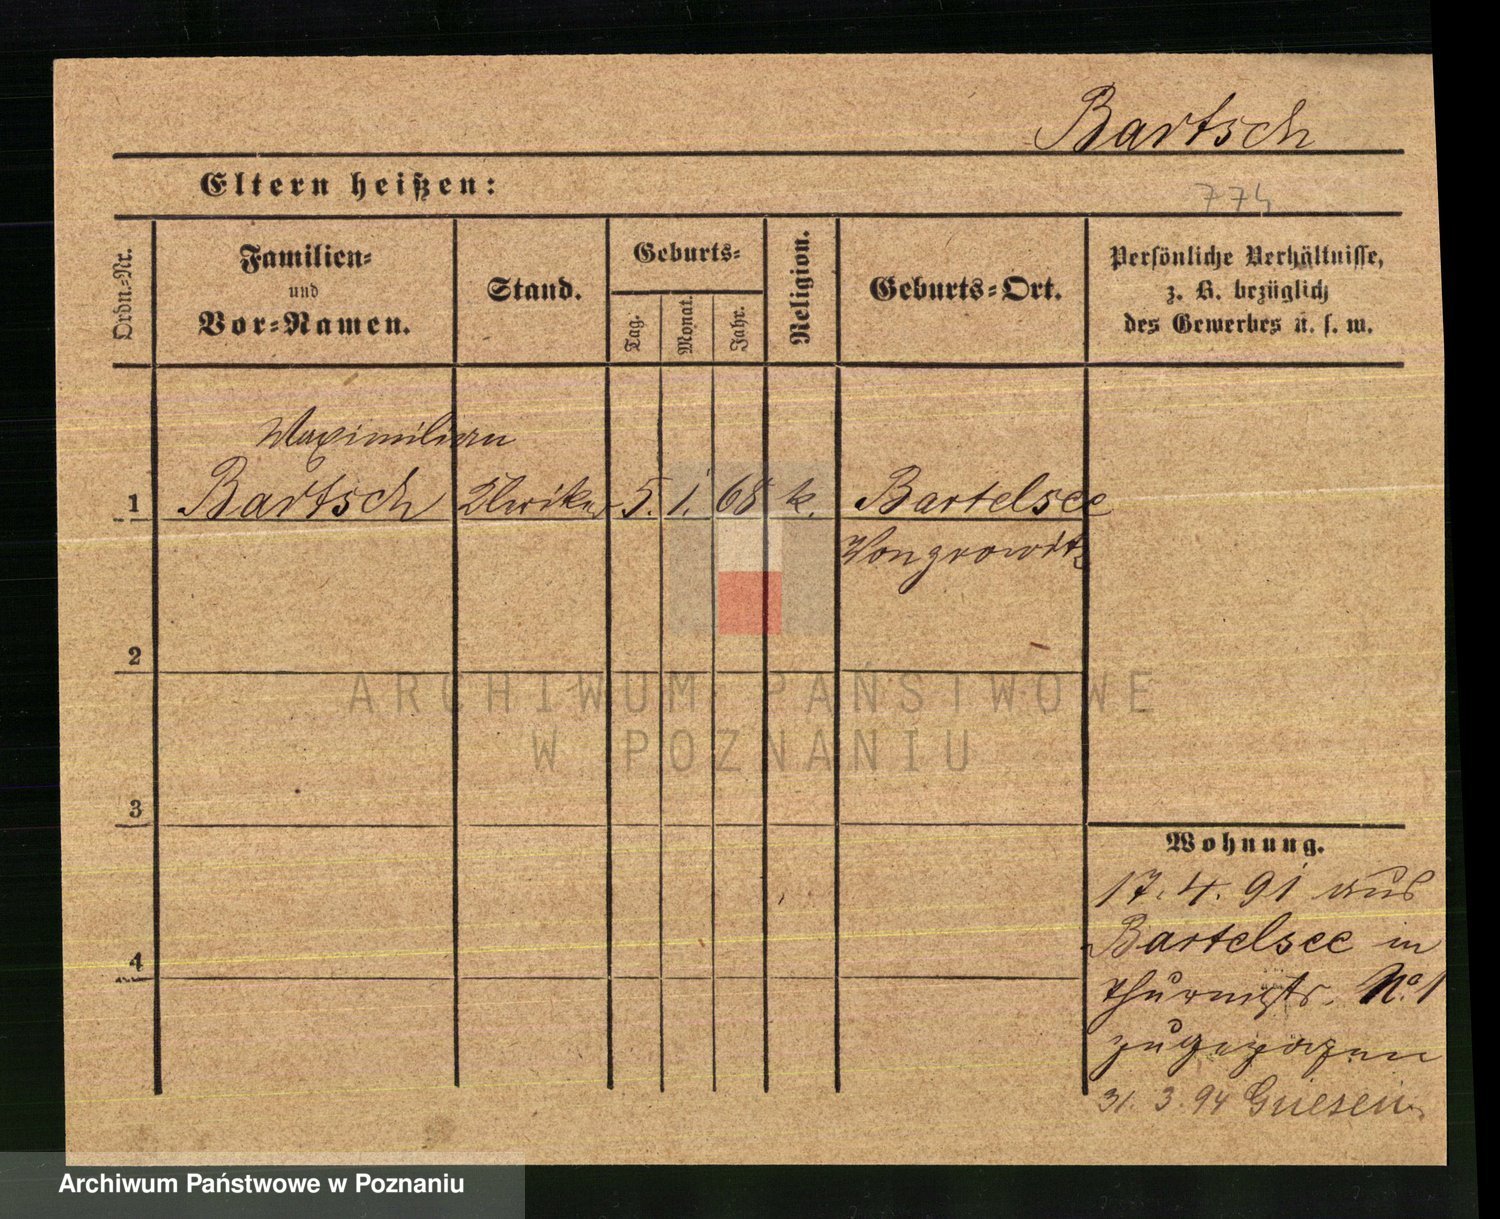 Bartsch
Eltern heißen:
774
Ordn.-Nr.
Familien-
und
Vor-Namen.
Stand.
Geburts-
Tag.
Monat.
Jahr.
Religion.
Geburts-Ort.
Persönliche Verhältnisse,
z. B. bezüglich
des Gewerbes u. s. w.
Maximilian
1 Bartsch 5. 1. 68 k. Bartelsee
Wongrowitz
2
3
4
Wohnung.
17. 4. 91 aus
Bartelsee in
No. 1
zugezogen
31. 3. 94 Gnesen
ARCHIWUM PAŃSTWOWE
W POZNANIU
Archiwum Państwowe w Poznaniu